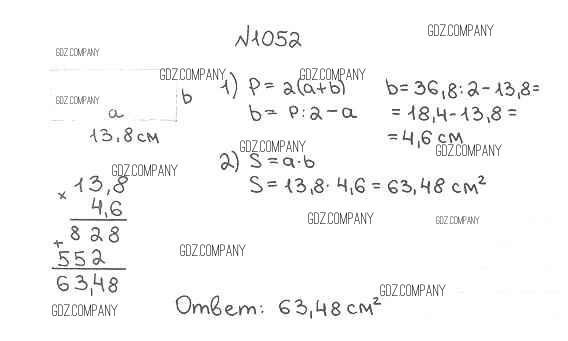 N1052
GDZ.COMPANY
GDZ.COMPANY
GDZ.COMPANY
GDZ.COMPANY
b
a
13,8 см
1) P = 2(a+b)
b = P:2 - a
b = 36,8:2 - 13,8 =
= 18,4 - 13,8 =
= 4,6 см
GDZ.COMPANY
GDZ.COMPANY
2) S = a·b
S = 13,8 · 4,6 = 63,48 см²
GDZ.COMPANY
× 13,8
4,6
+ 828
552
63,48
GDZ.COMPANY
GDZ.COMPANY
GDZ.COMPANY
GDZ.COMPANY
GDZ.COMPANY
Ответ: 63,48 см²